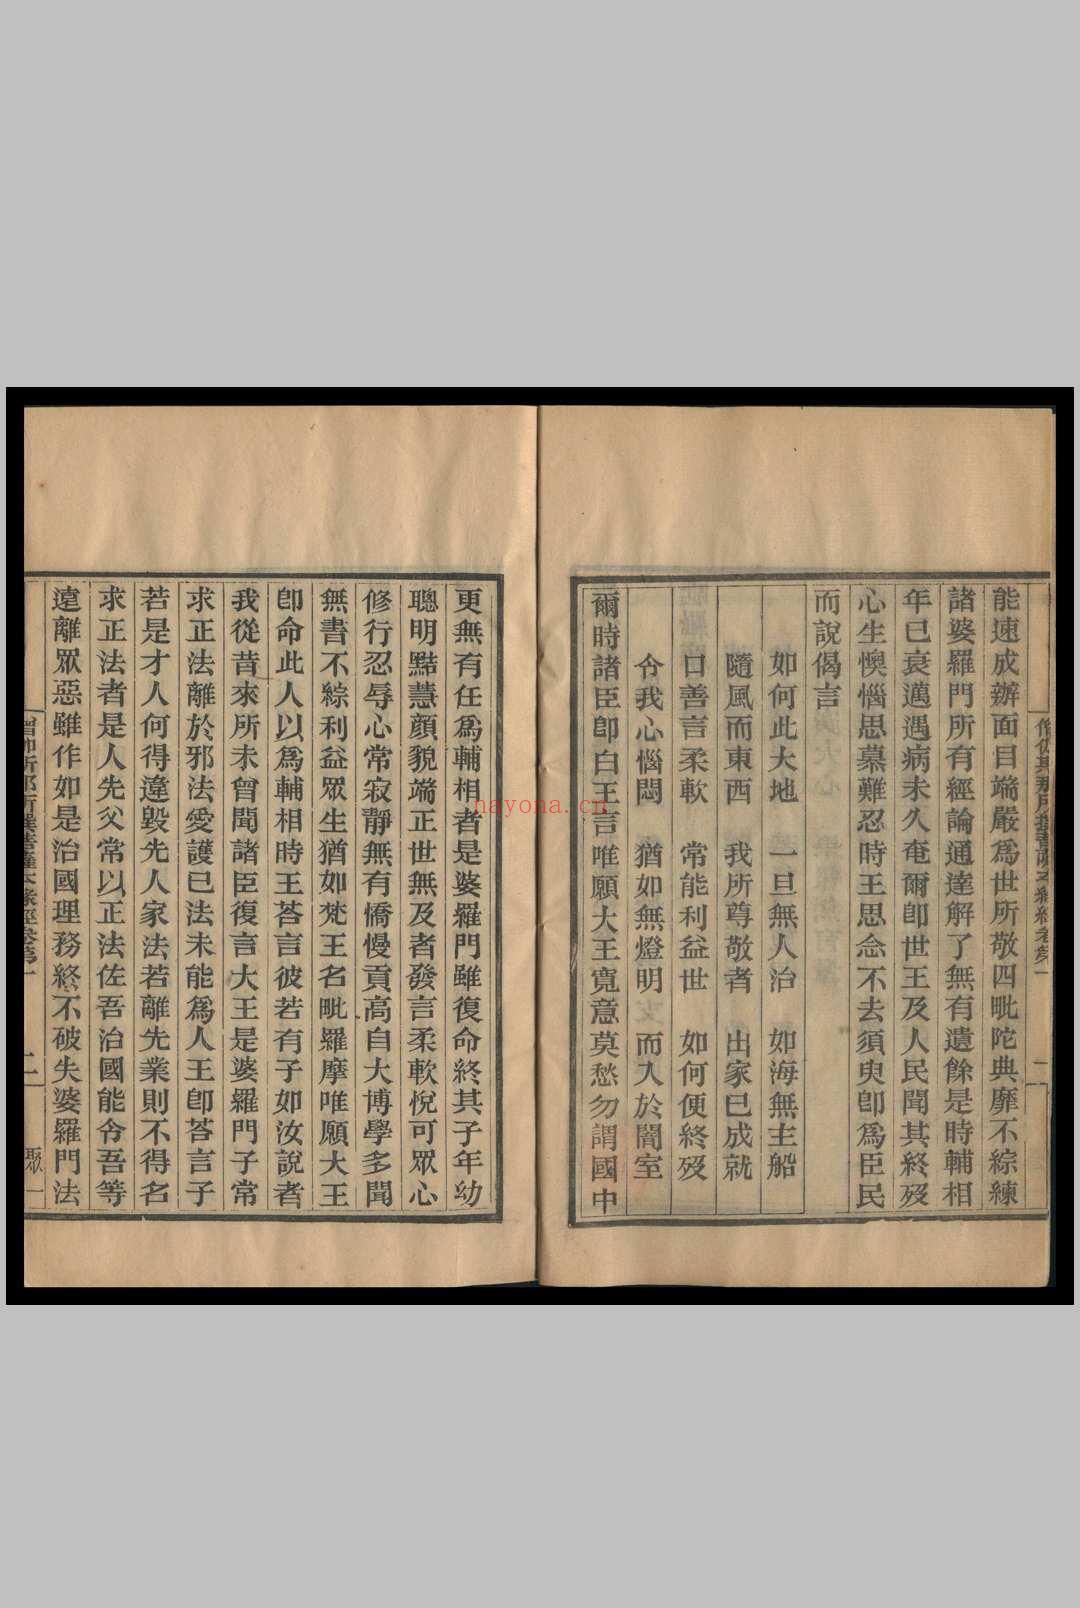 能速成辦面目端嚴爲世所敬四毗陀典靡不綜練
諸婆羅門所有經論通達解了無有遺餘是時輔相
年已衰邁遇病未久奄爾卽世王及人民聞其終歿
心生懊惱思慕難忍時王思念不去須臾卽爲臣民
而說偈言
如何此大地　一旦無人治　如海無主船
隨風而東西　我所尊敬者　出家已成就
口善言柔軟　常能利益世　如何便終歿
令我心惱悶　猶如無燈明　而入於闇室
爾時諸臣卽白王言唯願大王寬意莫愁勿謂國中
更無有任爲輔相者是婆羅門雖復命終其子年幼
聰明黠慧顏貌端正世無及者發言柔軟悅可眾心
修行忍辱心常寂靜無有憍慢貢高自大博學多聞
無書不綜利益眾生猶如梵王名毗羅摩唯願大王
卽命此人以爲輔相時王荅言彼若有子如汝說者
我從昔來所未曾聞諸臣復言大王是婆羅門子常
求正法離於邪法愛護己法未能爲人王卽荅言子
若是才人何得違毀先人家法若離先業則不得名
求正法者是人先父常以正法佐吾治國能令吾等
遠離眾惡雖作如是治國理務終不破失婆羅門法
菩薩本緣經卷第一
二
nayona.cn